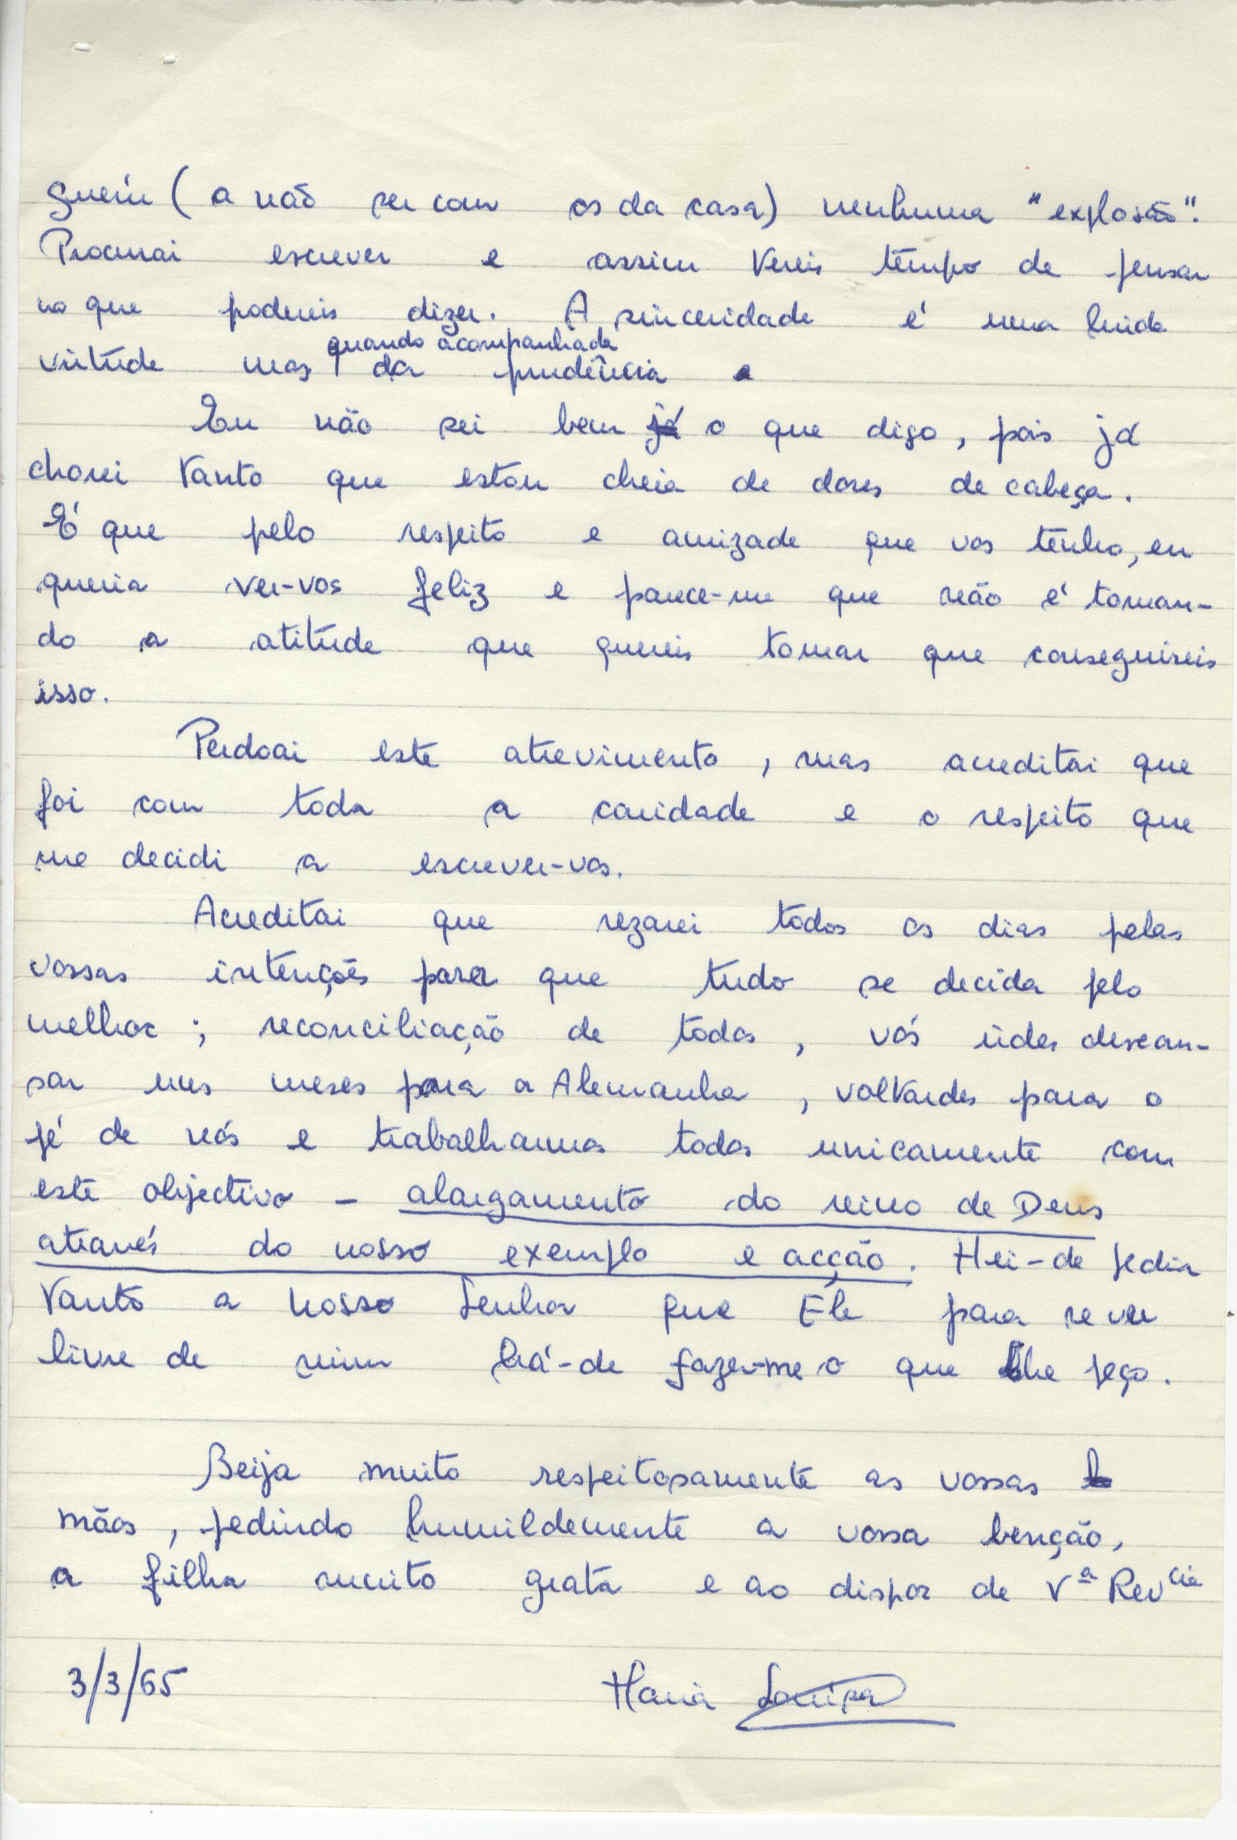 guém (a não ser com os da casa) nenhuma "explosão".
Procurai escrever e assim tereis tempo de pensar
no que podereis dizer. A sinceridade é uma linda
virtude mas quando acompanhada da prudência
Eu não sei bem já o que digo, pois já
chorei tanto que estou cheia de dores de cabeça.
É que pelo respeito e amizade que vos tenho, eu
queria ver-vos feliz e parece-me que não é toman-
do a atitude que quereis tomar que conseguireis
isso.
Perdoai este atrevimento, mas acreditai que
foi com toda a caridade e o respeito que
me decidi a escrever-vos.
Acreditai que rezarei todos os dias pelas
vossas intenções para que tudo se decida pelo
melhor; reconciliação de todos, vós irdes descan-
sar uns meses para a Alemanha, voltardes para o
pé de nós e trabalharmos todos unicamente com
este objectivo - alargamento do reino de Deus
através do nosso exemplo e acção. Hei-de pedir
tanto a Nosso Senhor que Ele para se ver
livre de mim há-de fazer-me o que lhe peço.
Beija muito respeitosamente as vossas
mãos, pedindo humildemente a vossa benção,
a filha muito grata e ao dispor de Vª Revcia
3/3/65
Maria Louisa